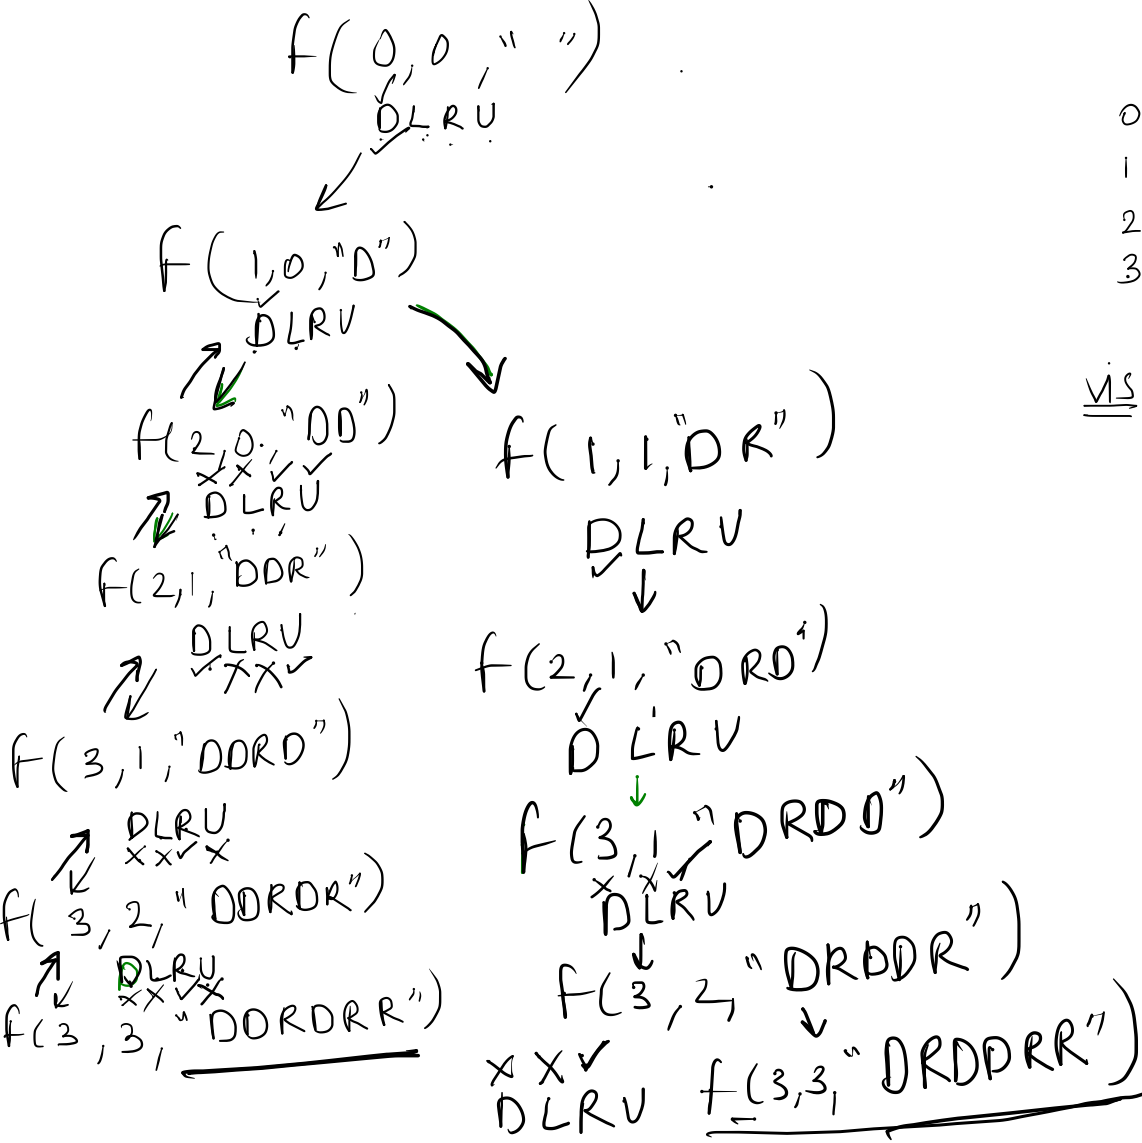 f(0,0," ")
DLRU
f(1,0,"D")
DLRU
f(2,0,"DD")
DLRU
f(2,1,"DDR")
DLRU
f(3,1,"DDRD")
DLRU
f(3,2,"DDRDR")
DLRU
f(3,3,"DDRDRR")
f(1,1,"DR")
DLRU
f(2,1,"DRD")
DLRU
f(3,1"DRDD")
DLRU
f(3,2,"DRDDR")
DLRU
f(3,3,"DRDDRR")
0
1
2
3
vis